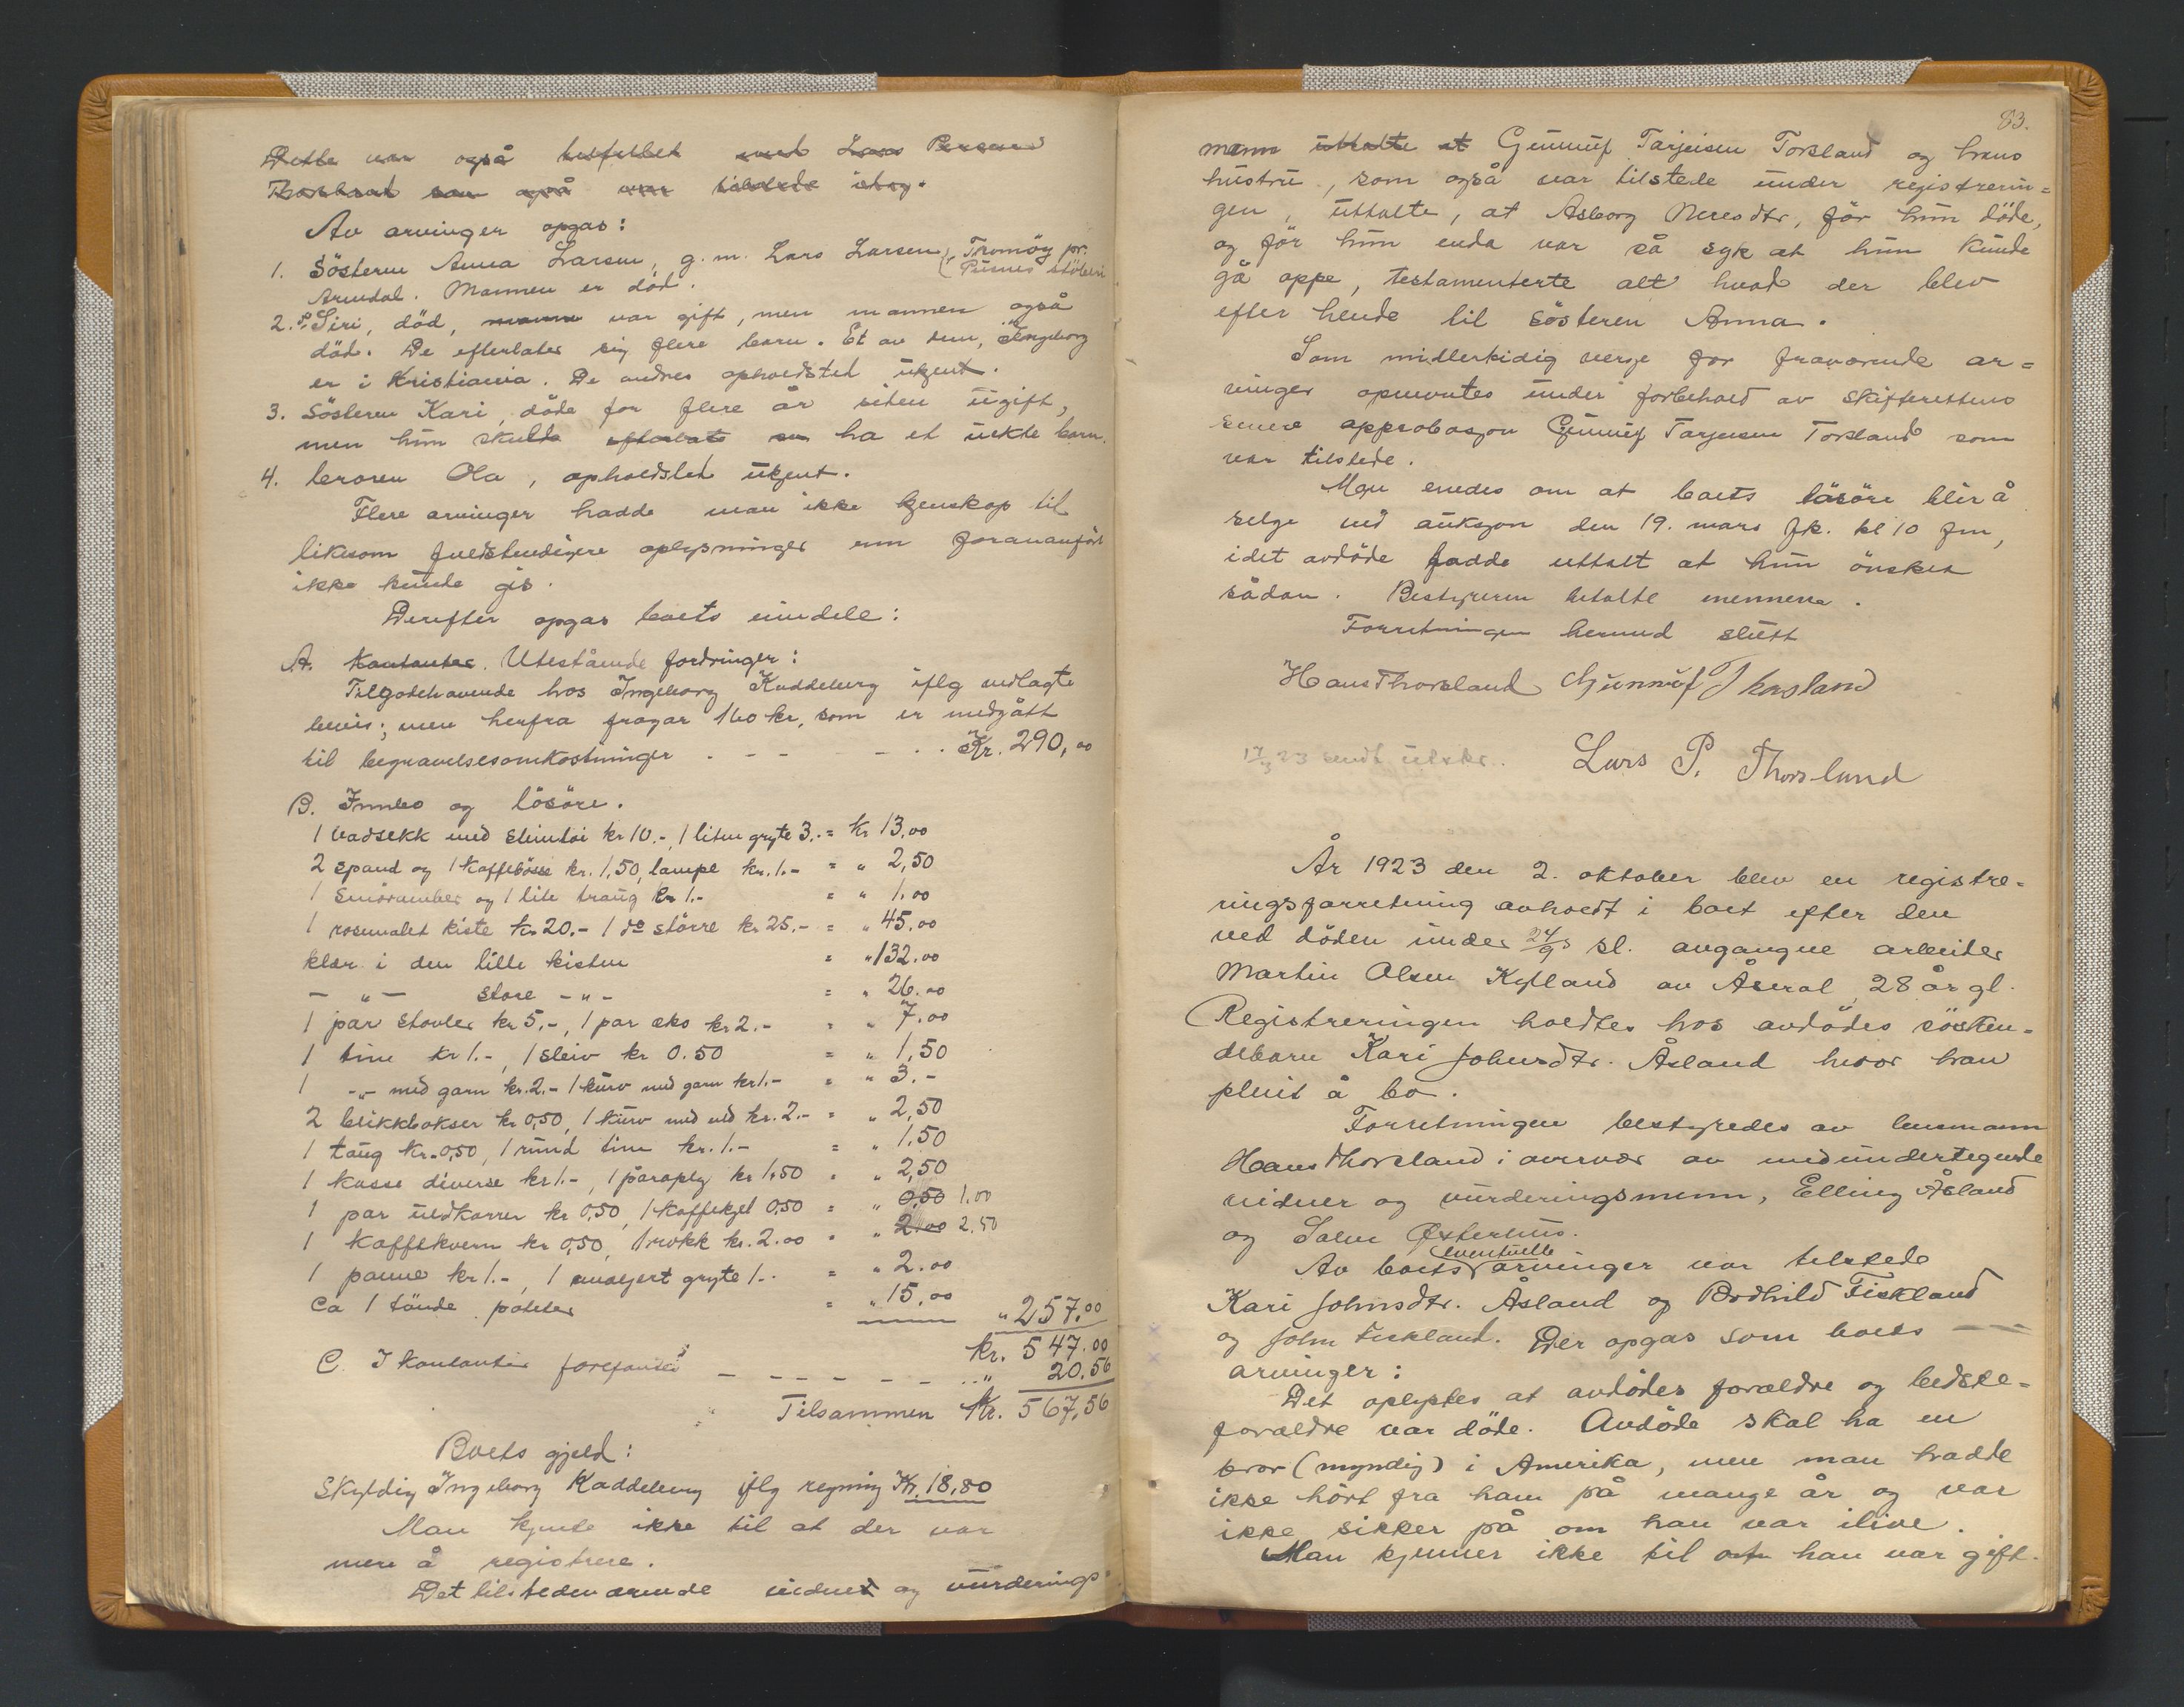 Dette var også tilfellet med Lars Persen
Thorsland som også var tilstede idag.
Av arvinger opgas:
1. Søsteren Anna Larsen, g.m. Lars Larsen, Tromöy pr.
Arendal. Mannen er död.
2. Siri, död, mann var gift, men mannen også
död. De efterlater sig flere barn. Et av dem, Ingeborg
er i Kristiania. De andres opholdsted ukjent.
3. Søsteren Kari, döde for flere år siden ugift,
men hun skulde efterlate ha et uekte barn.
4. broren Ola, opholdsted ukjent.
Flere arvinger hadde man ikke kjenskap til
likesom fuldstendigere oplysninger enn forananfört
ikke kunde gis.
Derefter opgas boets eiendele:
A. Kontanter. Utestående fordringer:
Tilgodehavende hos Ingeborg Kaddeberg iflg vedlagte
bevis; men herfra fragar 160 kr, som er medgått
til begravelsesomkostninger - - - - . . Kr. 290,00
B. Innbo og lösöre.
1 vadsekk med slimtöi kr 10.-, 1 liten gryte 3.- = kr 13,00
2 spand og 1 kaffebösse kr. 1,50, lampe kr. 1.- = " 2,50
1 Smöramber og 1 lite traug kr 1.- = " 1.00
1 rosemalet kiste kr 20.- 1 do större kr 25.- = " 45,00
klær i den lille kisten = " 132.00
- " - store - " - = " 26.00
1 par stövler kr 5.-, 1 par sko kr 2.- = " 7.00
1 tine kr 1.-, 1 sleiv kr 0.50 = " 1,50
1 -"- med garn kr. 2.- 1 kurv med garn kr 1.- = " 3.-
2 blikkbokser kr 0,50, 1 kurv med uld kr. 2.- = " 2,50
1 taug kr. 0,50, 1 rund tine kr. 1.- = " 1.50
1 kasse diverse kr 1.-, 1 paraply kr 1,50 = " 2,50
1 par uldkarrer kr 0,50, 1 kaffekjel 0,50 = " 0,50 1.00
1 kaffekvern kr 0,50, 1 rokk kr. 2.00 = " 2.00 2.50
1 panne kr 1.-, 1 emaljert gryte 1.- = " 2.00
Ca 1 tönde poteter = " 15,00 " 257.00
kr. 547.00
C. I kontanter forefandtes - - - - - - .. " 20.56
Tilsammen Kr. 567,56
Boets gjeld:
Skyldig Ingeborg Kaddeberg iflg regning Kr. 18,80
Man kjente ikke til at der var
mere å registrere.
Det tilstedeværende vidner og vurderings-
83.
menn uttalte at Gunnuf Tarjeisen Torsland og hans
hustru, som også var tilstede under registrerin=
gen, uttalte, at Asborg Neresdtr, för hun döde,
og för hun enda var så syk at hun kunde
gå oppe, testamenterte alt hvad der blev
efter hende til søsteren Anna.
Som midlertidig verge for fraværende ar=
vinger opnevntes under forbehold av skifterettens
senere approbasjon Gunnuf Tarjeisen Torsland som
var tilstede.
Man enedes om at boets lösöre blir å
selge ved auksjon den 19. mars fk. kl 10 fm,
idet avdöde hadde uttalt at hun önsket
sådan. Bestyreren betalte mennene.
Forretningen hermed slutt
Hans Thorsland Gunnuf Thorsland
17/3 23 sendt utskr. Lars P. Thorsland
År 1923 den 2. oktober blev en registre=
ringsforretning avholdt i boet efter den
ved döden under 24/9 sl. avgangne arbeider
Martin Olsen Kylland av Åseral, 28 år gl.
Registreringen holdtes hos avdödes sösken=
debarn Kari Johnsdtr. Åsland hvor han
pleiet å bo.
Forretningen bestyredes av lensmann
Hans Thorsland i overvær av medundertegnede
vidner og vurderingsmenn, Elling Åsland
og Salve Østerhus.
Av boets eventuelle arvinger var tilstede
Kari Johnsdtr. Åsland og Bodhild Fiskland
og John Fiskland. Der opgas som boets
arvinger:
Det oplystes at avdödes forældre og bedste=
forældre var döde. Avdöde skal ha en
bror (myndig) i Amerika, men man hadde
ikke hört fra ham på mange år og var
ikke sikker på om han var ilive.
Man kjenner ikke til om han var gift.